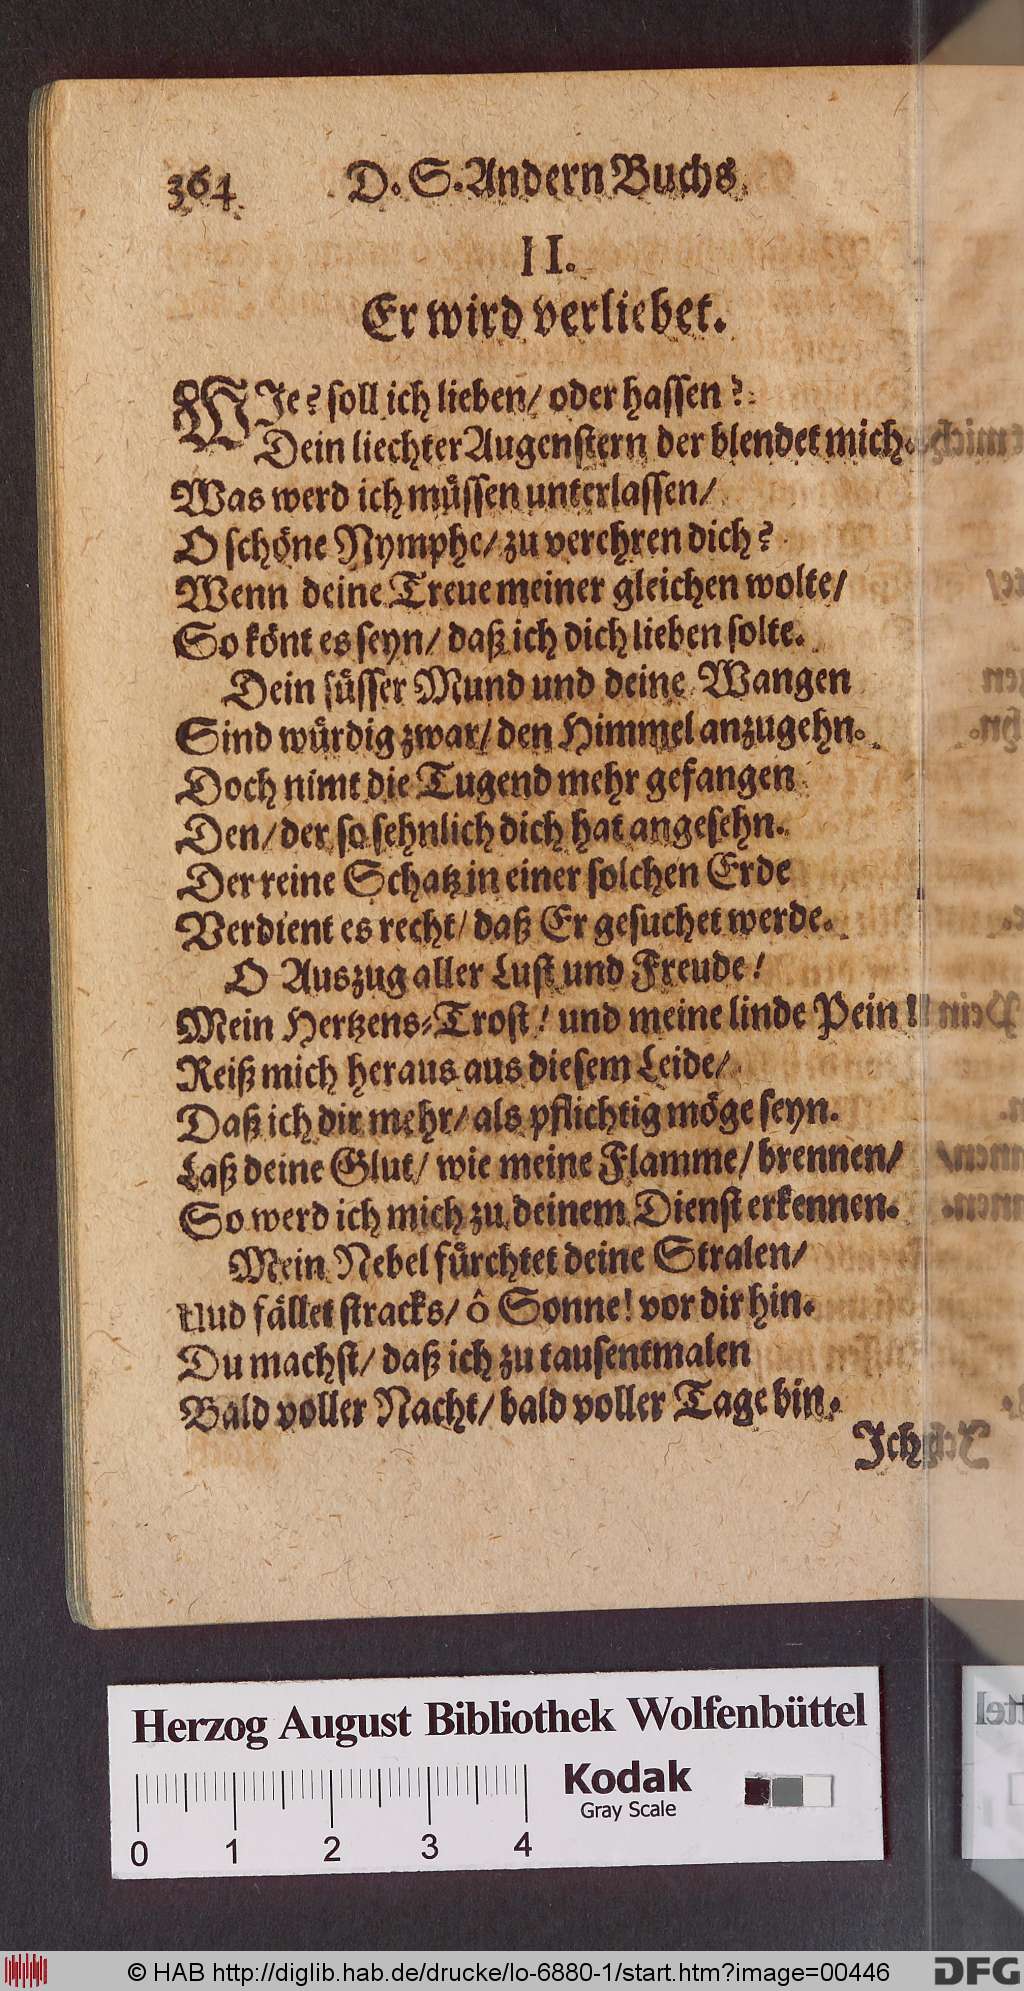 364 D. S. Andern Buchs
II.
Er wird verliebet.
WJe? soll ich lieben/ oder hassen?
Dein liechter Augenstern der blendet mich.
Was werd ich müssen unterlassen/
O schöne Nymphe/ zu verehren dich?
Wenn deine Treue meiner gleichen wolte/
So könt es seyn/ daß ich dich lieben solte.
Dein süsser Mund und deine Wangen
Sind würdig zwar/ den Himmel anzugehn.
Doch nimt die Tugend mehr gefangen
Den/ der so sehnlich dich hat angesehn.
Der reine Schatz in einer solchen Erde
Verdient es recht/ daß Er gesuchet werde.
O Auszug aller Lust und Freude!
Mein Hertzens-Trost! und meine linde Pein!
Reiß mich heraus aus diesem Leide/
Daß ich dir mehr/ als pflichtig möge seyn.
Laß deine Glut/ wie meine Flamme/ brennen/
So werd ich mich zu deinem Dienst erkennen.
Mein Nebel fürchtet deine Stralen/
Uud fället stracks/ ô Sonne! vor dir hin.
Du machst/ daß ich zu tausentmalen
Bald voller Nacht/ bald voller Tage bin.
Jch
Herzog August Bibliothek Wolfenbüttel
Kodak
Gray Scale
0 1 2 3 4
© HAB http://diglib.hab.de/drucke/lo-6880-1/start.htm?image=00446
DFG